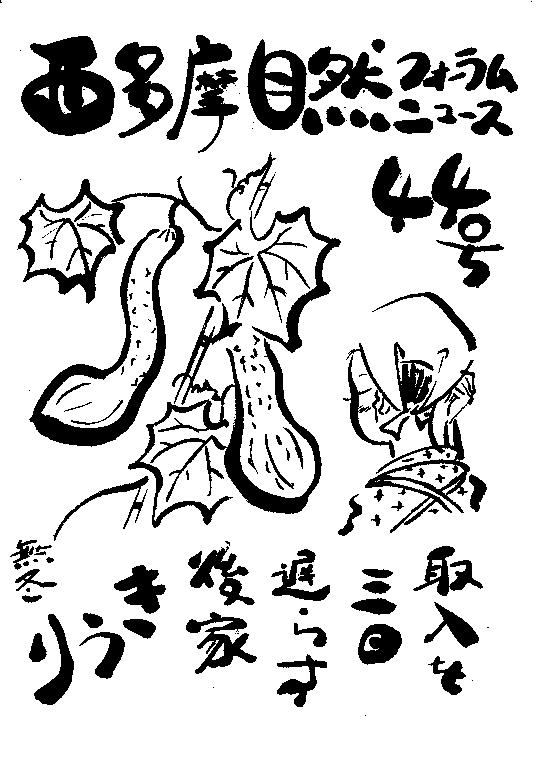 西多摩自然フォーラム
ニュース
44号
取入を
三日
遅らす
後家
きうり
無冬